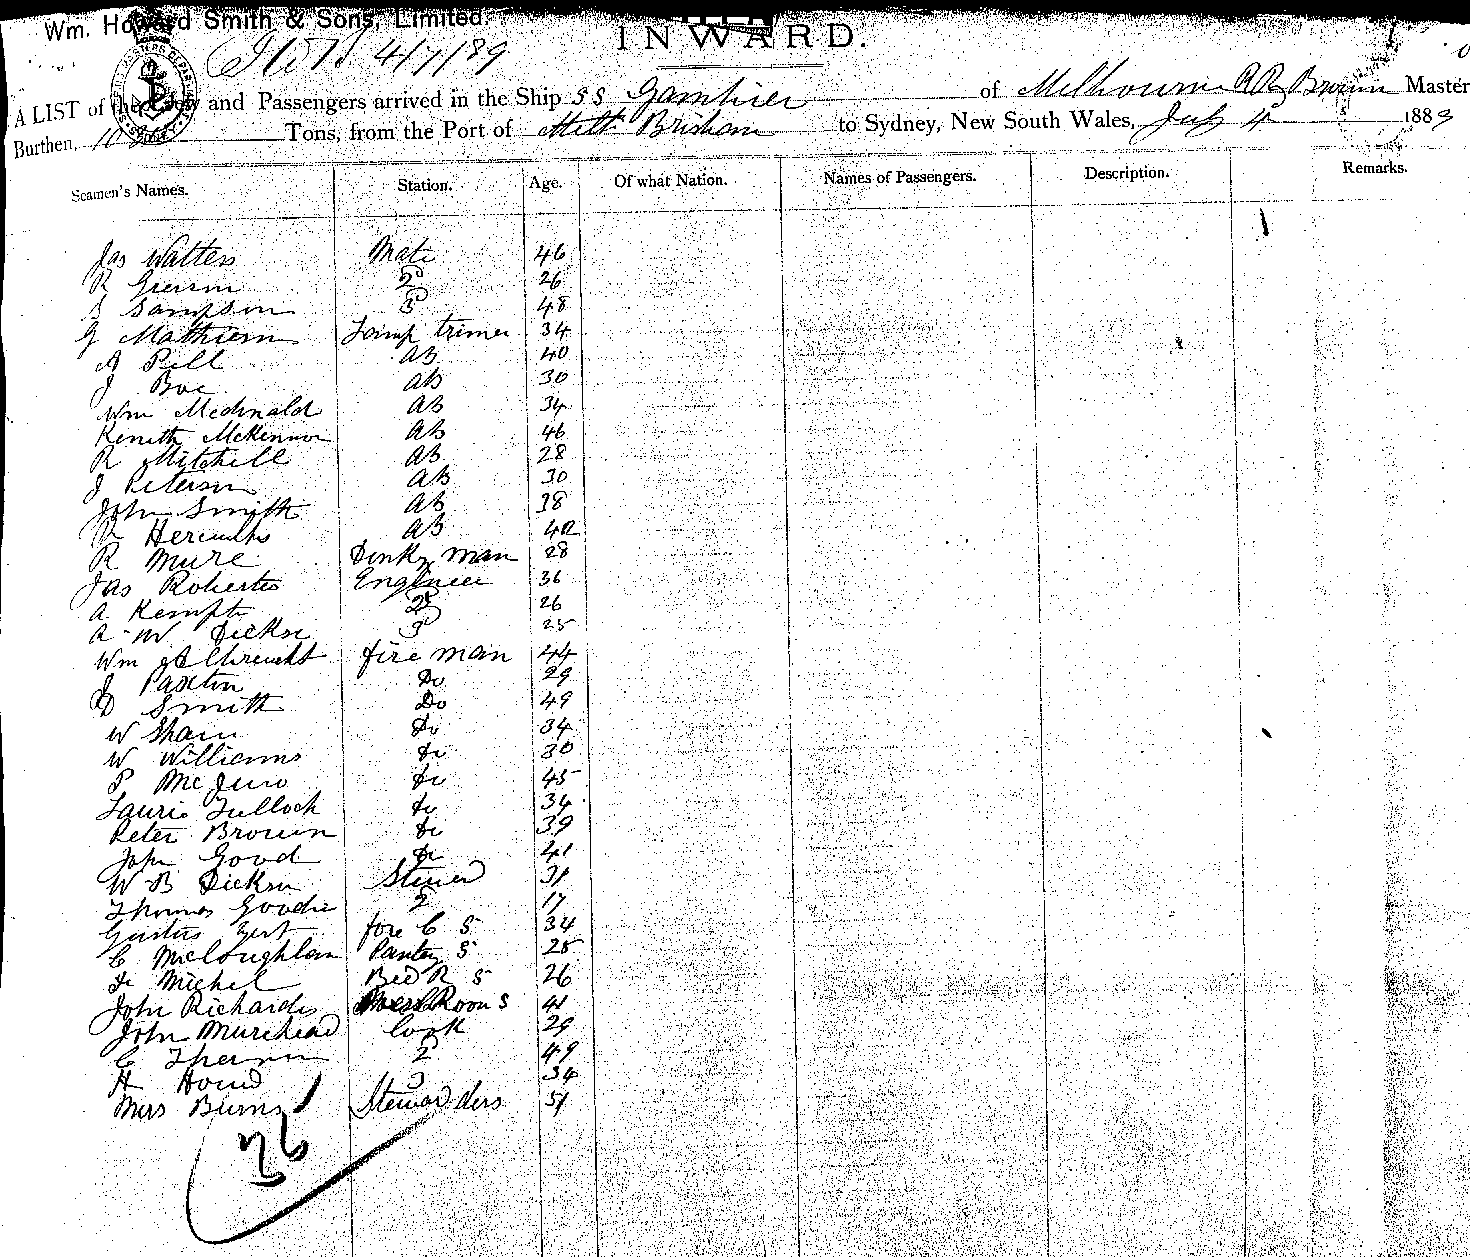 Wm. Howard Smith & Sons, Limited.
INWARD.
4/7/89
A LIST of the Crew and Passengers arrived in the Ship SS Gambier of Melbourne Master
Burthen, Tons, from the Port of Brisbane to Sydney, New South Wales, July 4 1889
Seamen's Names. Station. Age. Of what Nation. Names of Passengers. Description. Remarks.
Jas Watters Mate 46
R Grierson 2d 26
S Sampson 3d 48
G Mathieson Lamp trimer 34
A Pell AB 40
J Boe AB 30
Wm Mcdonald AB 34
Kenith McKinnon AB 46
R Mitchell AB 28
J Peterson AB 30
John Smith AB 38
AB 42
R Mure Donky man 28
Jas Roberts Engineer 36
A Kempt 2d 26
A W Dickson 3d 25
Wm fire man 44
J Paxton Do 29
D Smith Do 49
W Sham Do 34
W Williams Do 30
P Do 45
Laurie Tulloch Do 34
Peter Brown Do 39
John Good Do 41
W B Dickson Stewed 31
Thomas Goodie 2 17
fore C S 34
C McLoughlan Pantry S 25
Michel Bed R S 26
John Richards Mess Room S 41
John Murehead Cook 29
C 2 49
H 3 34
Mrs Burns Steward ders 51